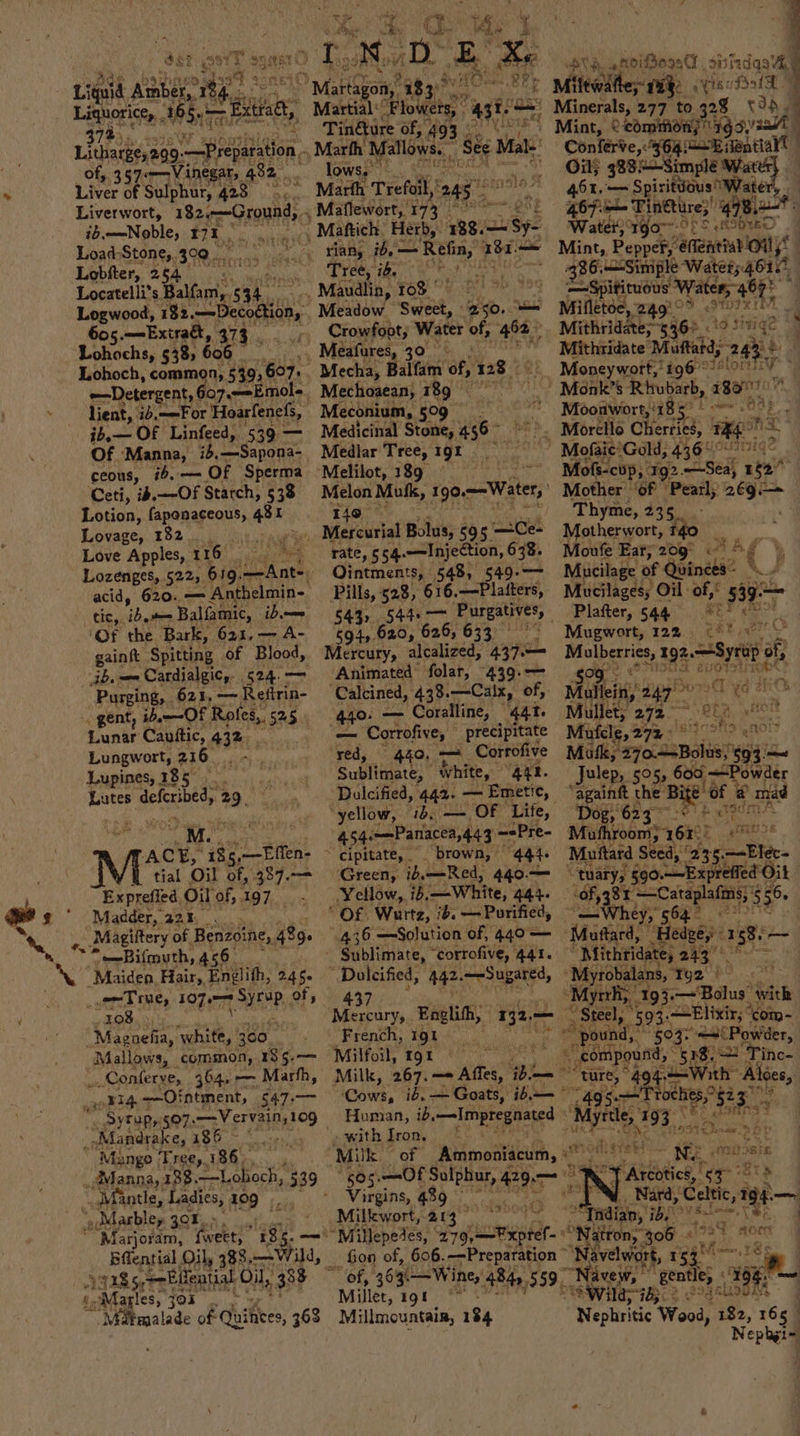 I N D E X.
Liquid Amber, 184
Liquorice, 165.— Extract,
372
Litharge, 299.—Preparation
of, 357.—Vinegar, 482
Liver of Sulphur, 428
Liverwort, 182.—Ground,
ib.—Noble, 171
Load-Stone, 300
Lobſter, 254
Locatelli's Balſam, 534
Logwood, 182.—Decoction,
605.—Extract, 373
Lohochs, 538, 606
Lohoch, common, 539, 607.
—Detergent, 607.—Emol-
lient, ib.—For Hoarſeneſs,
ib.— Of Linſeed, 539 —
Of Manna, ib.—Sapona-
ceous, ib.— Of Sperma
Ceti, ib.—Of Starch, 538
Lotion, ſaponaceous, 481
Lovage, 182
Love Apples, 116
Lozenges, 522, 619.—Ant-
acid, 620.— Anthelmin-
tic, ib.— Balſamic, ib.—
Of the Bark, 621.— A-
gainſt Spitting of Blood,
ib.— Cardialgic, 524.—
Purging, 621.— Reſtrin-
gent, ib.—Of Roſes, 525
Lunar Cauſtic, 432
Lungwort, 216
Lupines, 185
Lutes deſcribed, 29
M.
MACE, 185.—Eſſen-
tial Oil of, 387.—
Expreſſed Oil of, 197
Madder, 221
Magiſtery of Benzoine, 489.
—Biſmuth, 456
Maiden Hair, Engliſh, 245.
—True, 107.— Syrup of,
108
Magneſia, white, 360
Mallows, common, 185.—
Conſerve, 364.— Marſh,
114.—Ointment, 547.—
Syrup, 507.—Vervain, 109
Mandrake, 186
Mango Tree, 186
Manna, 188.—Lohoch, 539
Mantle, Ladies, 109
Marble, 301
Marjoram, ſweet, 185.—
Eſſential Oil, 388.—Wild,
185.—Eſſential Oil, 388
Marles, 301
Marmalade of Quinces, 368
Martagon, 183
Martial Flowers, 431.—
Tincture of, 493
Marſh Mallows. See Mal-
lows.
Marſh Trefoil, 245
Maſlewort, 173
Maſtich Herb, 188.— Sy-
rian, ib.— Reſin, 181.—
Tree, ib.
Maudlin, 108
Meadow Sweet, 250.—
Crowfoot, Water of, 462
Meaſures, 30
Mecha, Balſam of, 128
Mechoacan, 189
Meconium, 509
Medicinal Stone, 456
Medlar Tree, 191
Melilot, 189
Melon Muſk, 190.—Water,
140
Mercurial Bolus, 595 —Ce-
rate, 554.—Injection, 638.
Ointments, 548, 549.—
Pills, 528, 616.—Plaſters,
543, 544.— Purgatives,
594, 620, 626, 633
Mercury, alcalized, 437.—
Animated ſolar, 439.—
Calcined, 438.—Calx, of,
440. — Coralline, 441.
— Corroſive, precipitate
red, 440, — Corroſive
Sublimate, white, 441.
Dulcified, 442. — Emetic,
yellow, ib. — Of Life,
454.—Panacea, 443 —Pre-
cipitate, brown, 444.
Green, ib.—Red, 440.—
Yellow, ib.—White, 444.
Of Wurtz, ib. — Purified,
436 —Solution of, 440 —
Sublimate, corroſive, 441.
Dulcified, 442.—Sugared,
437
Mercury, Engliſh, 132.—
French, 191
Milfoil, 191
Milk, 267.— Aſſes, ib.—
Cows, ib.— Goats, ib.—
Human, ib.—Impregnated
with Iron.
Milk of Ammoniacum,
505.—Of Sulphur, 429.—
Virgins, 489
Milkwort, 213
Millepedes, 279,—Expreſ-
ſion of, 606.—Preparation
of, 363.—Wine, 484, 559
Millet, 191
Millmountain, 184
Miltwaſte,
Minerals, 277 to 328
Mint, common,
Conſerve, 364.—Eſſential
Oil, 388.—Simple Water,
461.— Spirituous Water,
467.— Tincture, 498.—
Water, 190
Mint, Pepper, eſſential Oil,
386.—Simple Water, 461.
—Spirituous Water, 467
Miſletoe, 249
Mithridate, 536
Mithridate Muſtard, 243
Moneywort, 196
Monk's Rhubarb, 180
Moonwort, 185
Morello Cherries, 144
Moſaic Gold, 436
Moſs-cup, 192.—Sea, 152
Mother of Pearl, 269.—
Thyme, 235
Motherwort, 140
Mouſe Ear, 209
Mucilage of Quinces
Mucilages, Oil of, 539.—
Plaſter, 544
Mugwort, 122
Mulberries, 192.—Syrup of,
509
Mullein, 247
Mullet, 272
Muſcle, 272
Muſk, 270.—Bolus, 593.—
Julep, 505, 600 —Powder
againſt the Bite of a mad
Dog, 623
Muſhroom, 161
Muſtard Seed, 235.—Elec-
tuary, 590.—Expreſſed Oil
of, 381 —Cataplaſms, 556.
—Whey, 564
Muſtard, Hedge, 158.—
Mithridate, 243
Myrobalans, 192
Myrrh, 193.—Bolus with
Steel, 593.—Elixir, com-
pound, 503. —Powder,
compound, 518.— Tinc-
ture, 494.—With Aloes,
495.—Troches, 523
Myrtle, 193
N.
NArcotics, 53
Nard, Celtic, 194.—
Indian, ib.
Natron, 306
Navelwort, 153
Navew, gentle, 194.—
Wild, ib.
Nephritic Wood, 182, 165
Nephri-